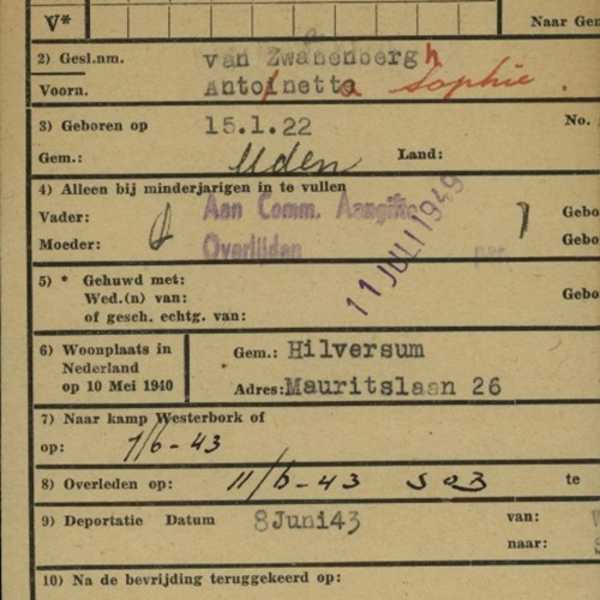 V*
Naar Gem
2) Gesl.nm. van Zwanenbergh
Voorn. Antoinetta Sophie
3) Geboren op 15.1.22 No.
Gem.: Uden Land:
4) Alleen bij minderjarigen in te vullen
Vader: Aan Comm. Aangifte Gebo
Moeder: Overlijden Gebo
11 JULI 1949
5) * Gehuwd met: Gebo
Wed.(n) van:
of gesch. echtg. van:
6) Woonplaats in Nederland op 10 Mei 1940
Gem.: Hilversum
Adres: Mauritslaan 26
7) Naar kamp Westerbork of
op: 1/6-43
8) Overleden op: 11/6-43 SOB te
9) Deportatie Datum 8 Juni 43 van:
naar: S
10) Na de bevrijding teruggekeerd op: